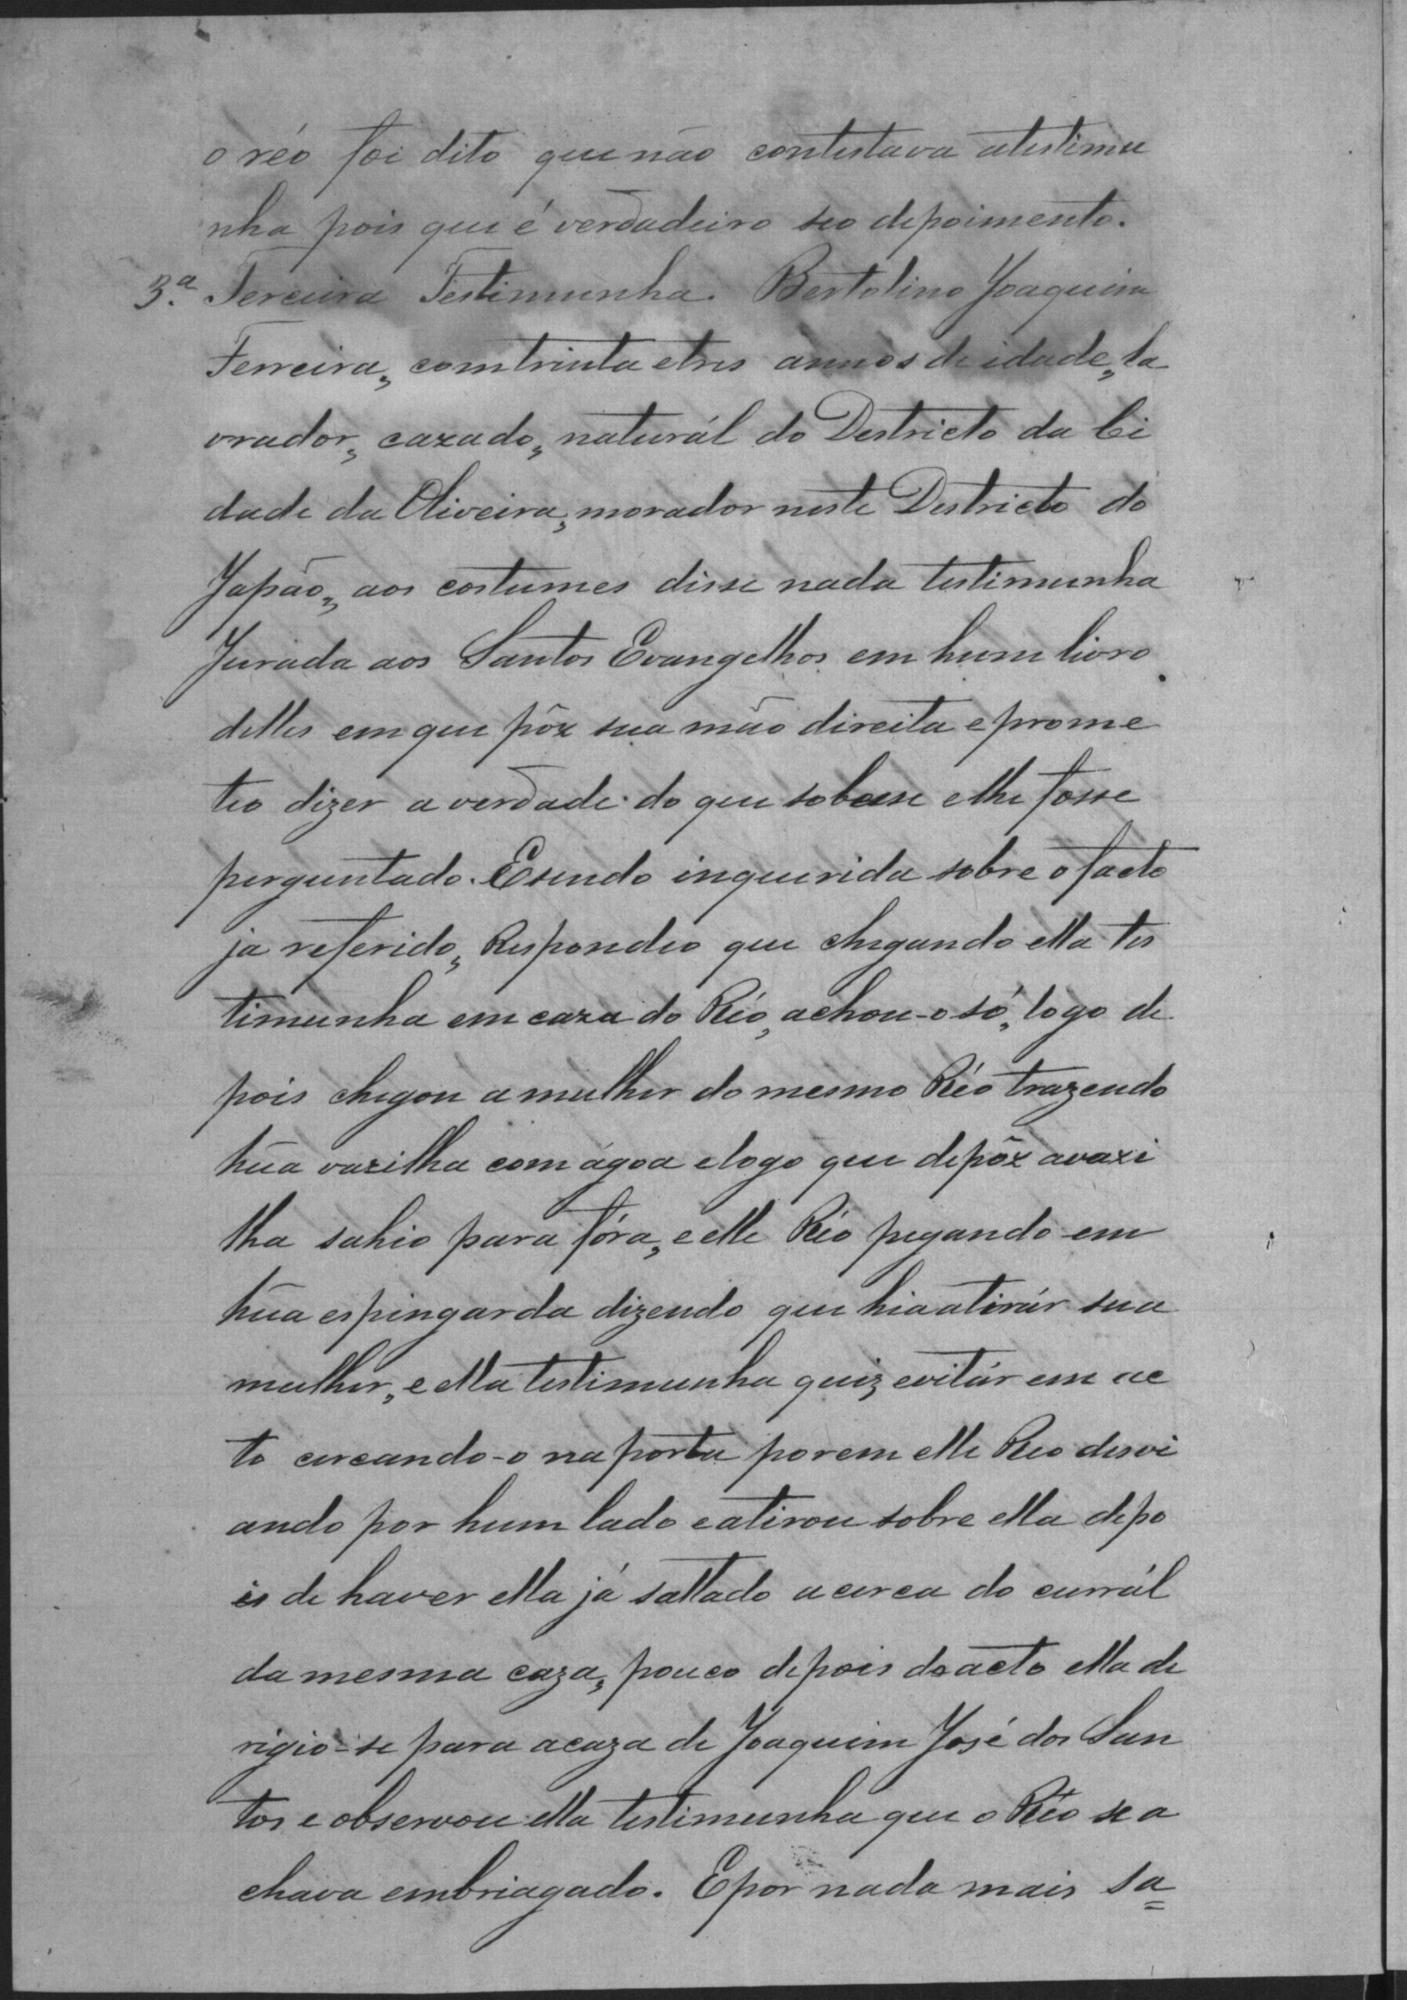 o réo foi dito que não contestava atestimu
nha pois que é verdadeiro seo depoimento.
3.ª Terceira Testimunha. Bertolino Joaquim
Ferreira, comtrinta etres annos de idade, la
vrador, cazado, naturál do Destricto da Ci
dade da Oliveira, morador neste Destricto do
Japão, aos costumes disse nada testimunha
Jurada aos Santos Evangelhos em hum livro
delles emque pôz sua mão direita eprome
teo dizer averdade do que sobesse elhe fosse
perguntado. Esendo inquerida sobre ofacto
ja referido, Respondeo que chegando ella tes
timunha emcaza do Réo, achou-o só, logo de
pois chegou amulher do mesmo Réo trazendo
hũa vazilha comágoa elogo que depôz avazi
lha sahio para fóra, eelle Réo pegando em
hũa espingarda dizendo que hiaatirár sua
mulher, e ella testimunha quiz evitár em ac
to cercando-o naporta porem elle Reo desvi
ando por hum lado eatirou sobre ella depo
is de haver ella já saltado acerca do currál
da mesma caza, pouco depois doacto ella de
rigio-se para acaza de Joaquim José dos San
tos e observou ella testimunha que o Réo se a
chava embriagado. Epor nada mais sa=